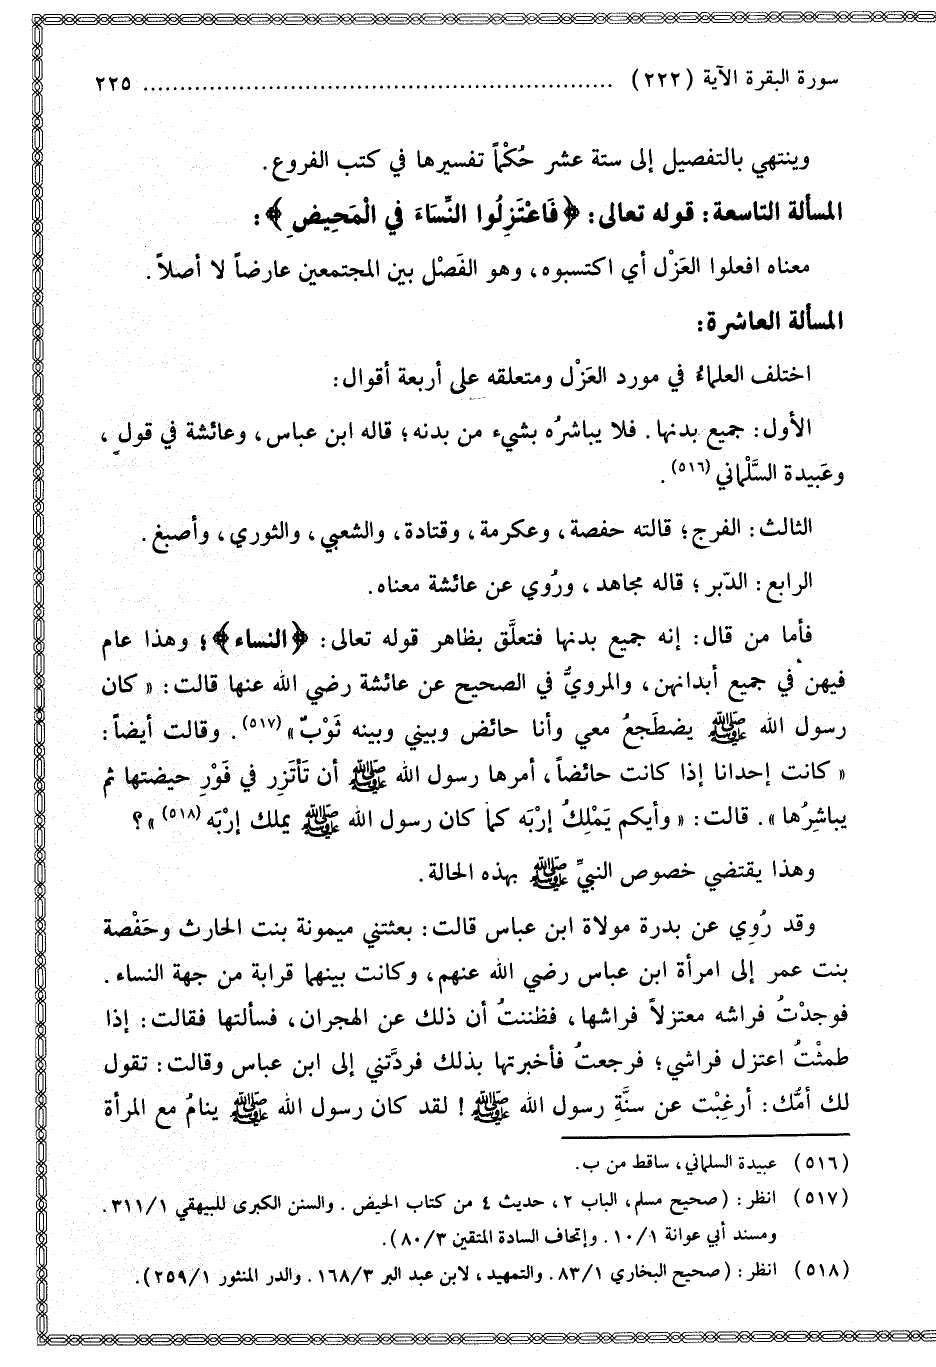 سورة البقرة الآية (٢٢٢) ................................................................ ٢٢٥
وينتهي بالتفصيل إلى ستة عشر حُكْماً تفسيرها في كتب الفروع.
المسألة التاسعة: قوله تعالى: ﴿فَاعْتَزِلُوا النِّسَاءَ في الْمَحِيضِ﴾:
معناه افعلوا العَزْل أي اكتسبوه، وهو الفَصْل بين المجتمعين عارضاً لا أصلاً.
المسألة العاشرة:
اختلف العلماءُ في مورد العَزْل ومتعلقه على أربعة أقوال:
الأول: جميع بدنها. فلا يباشرُه بشيء من بدنه؛ قاله ابن عباس، وعائشة في قولٍ،
وعَبيدة السَّلْماني (٥١٦).
الثالث: الفرج؛ قالته حفصة، وعكرمة، وقتادة، والشعبي، والثوري، وأصبغ.
الرابع: الدّبر؛ قاله مجاهد، ورُوي عن عائشة معناه.
فأما من قال: إنه جميع بدنها فتعلَّق بظاهر قوله تعالى: ﴿النساء﴾؛ وهذا عام
فيهن في جميع أبدانهن، والمرويُّ في الصحيح عن عائشة رضي الله عنها قالت: «كان
رسول الله ﷺ يضطَجعُ معي وأنا حائض وبيني وبينه ثَوْبٌ» (٥١٧). وقالت أيضاً:
«كانت إحدانا إذا كانت حائضاً، أمرها رسول الله ﷺ أن تَأْتَزِر في فَوْرِ حيضتها ثم
يباشِرُها». قالت: «وأيكم يَمْلِكُ إرْبَه كما كان رسول الله ﷺ يملك إرْبَه (٥١٨)»؟
وهذا يقتضي خصوص النبيِّ ﷺ بهذه الحالة.
وقد رُوِي عن بدرة مولاة ابن عباس قالت: بعثتني ميمونة بنت الحارث وحَفْصة
بنت عمر إلى امرأة ابن عباس رضي الله عنهم، وكانت بينهما قرابة من جهة النساء.
فوجدْتُ فراشه معتزلاً فراشها، فظننتُ أن ذلك عن الهجران، فسألتها فقالت: إذا
طمثْتُ اعتزل فراشي؛ فرجعتُ فأخبرتها بذلك فردَّتني إلى ابن عباس وقالت: تقول
لك أمُّك: أرغِبْت عن سنَّةِ رسول الله ﷺ! لقد كان رسول الله ﷺ ينامُ مع المرأة
(٥١٦) عبيدة السلماني، ساقط من ب.
(٥١٧) انظر: (صحيح مسلم، الباب ٢، حديث ٤ من كتاب الحيض. والسنن الكبرى للبيهقي ٣١١/١.
ومسند أبي عوانة ١٠/١. وإتحاف السادة المتقين ٨٠/٣).
(٥١٨) انظر: (صحيح البخاري ٨٣/١. والتمهيد، لابن عبد البر ١٦٨/٣. والدر المنثور ٢٥٩/١).